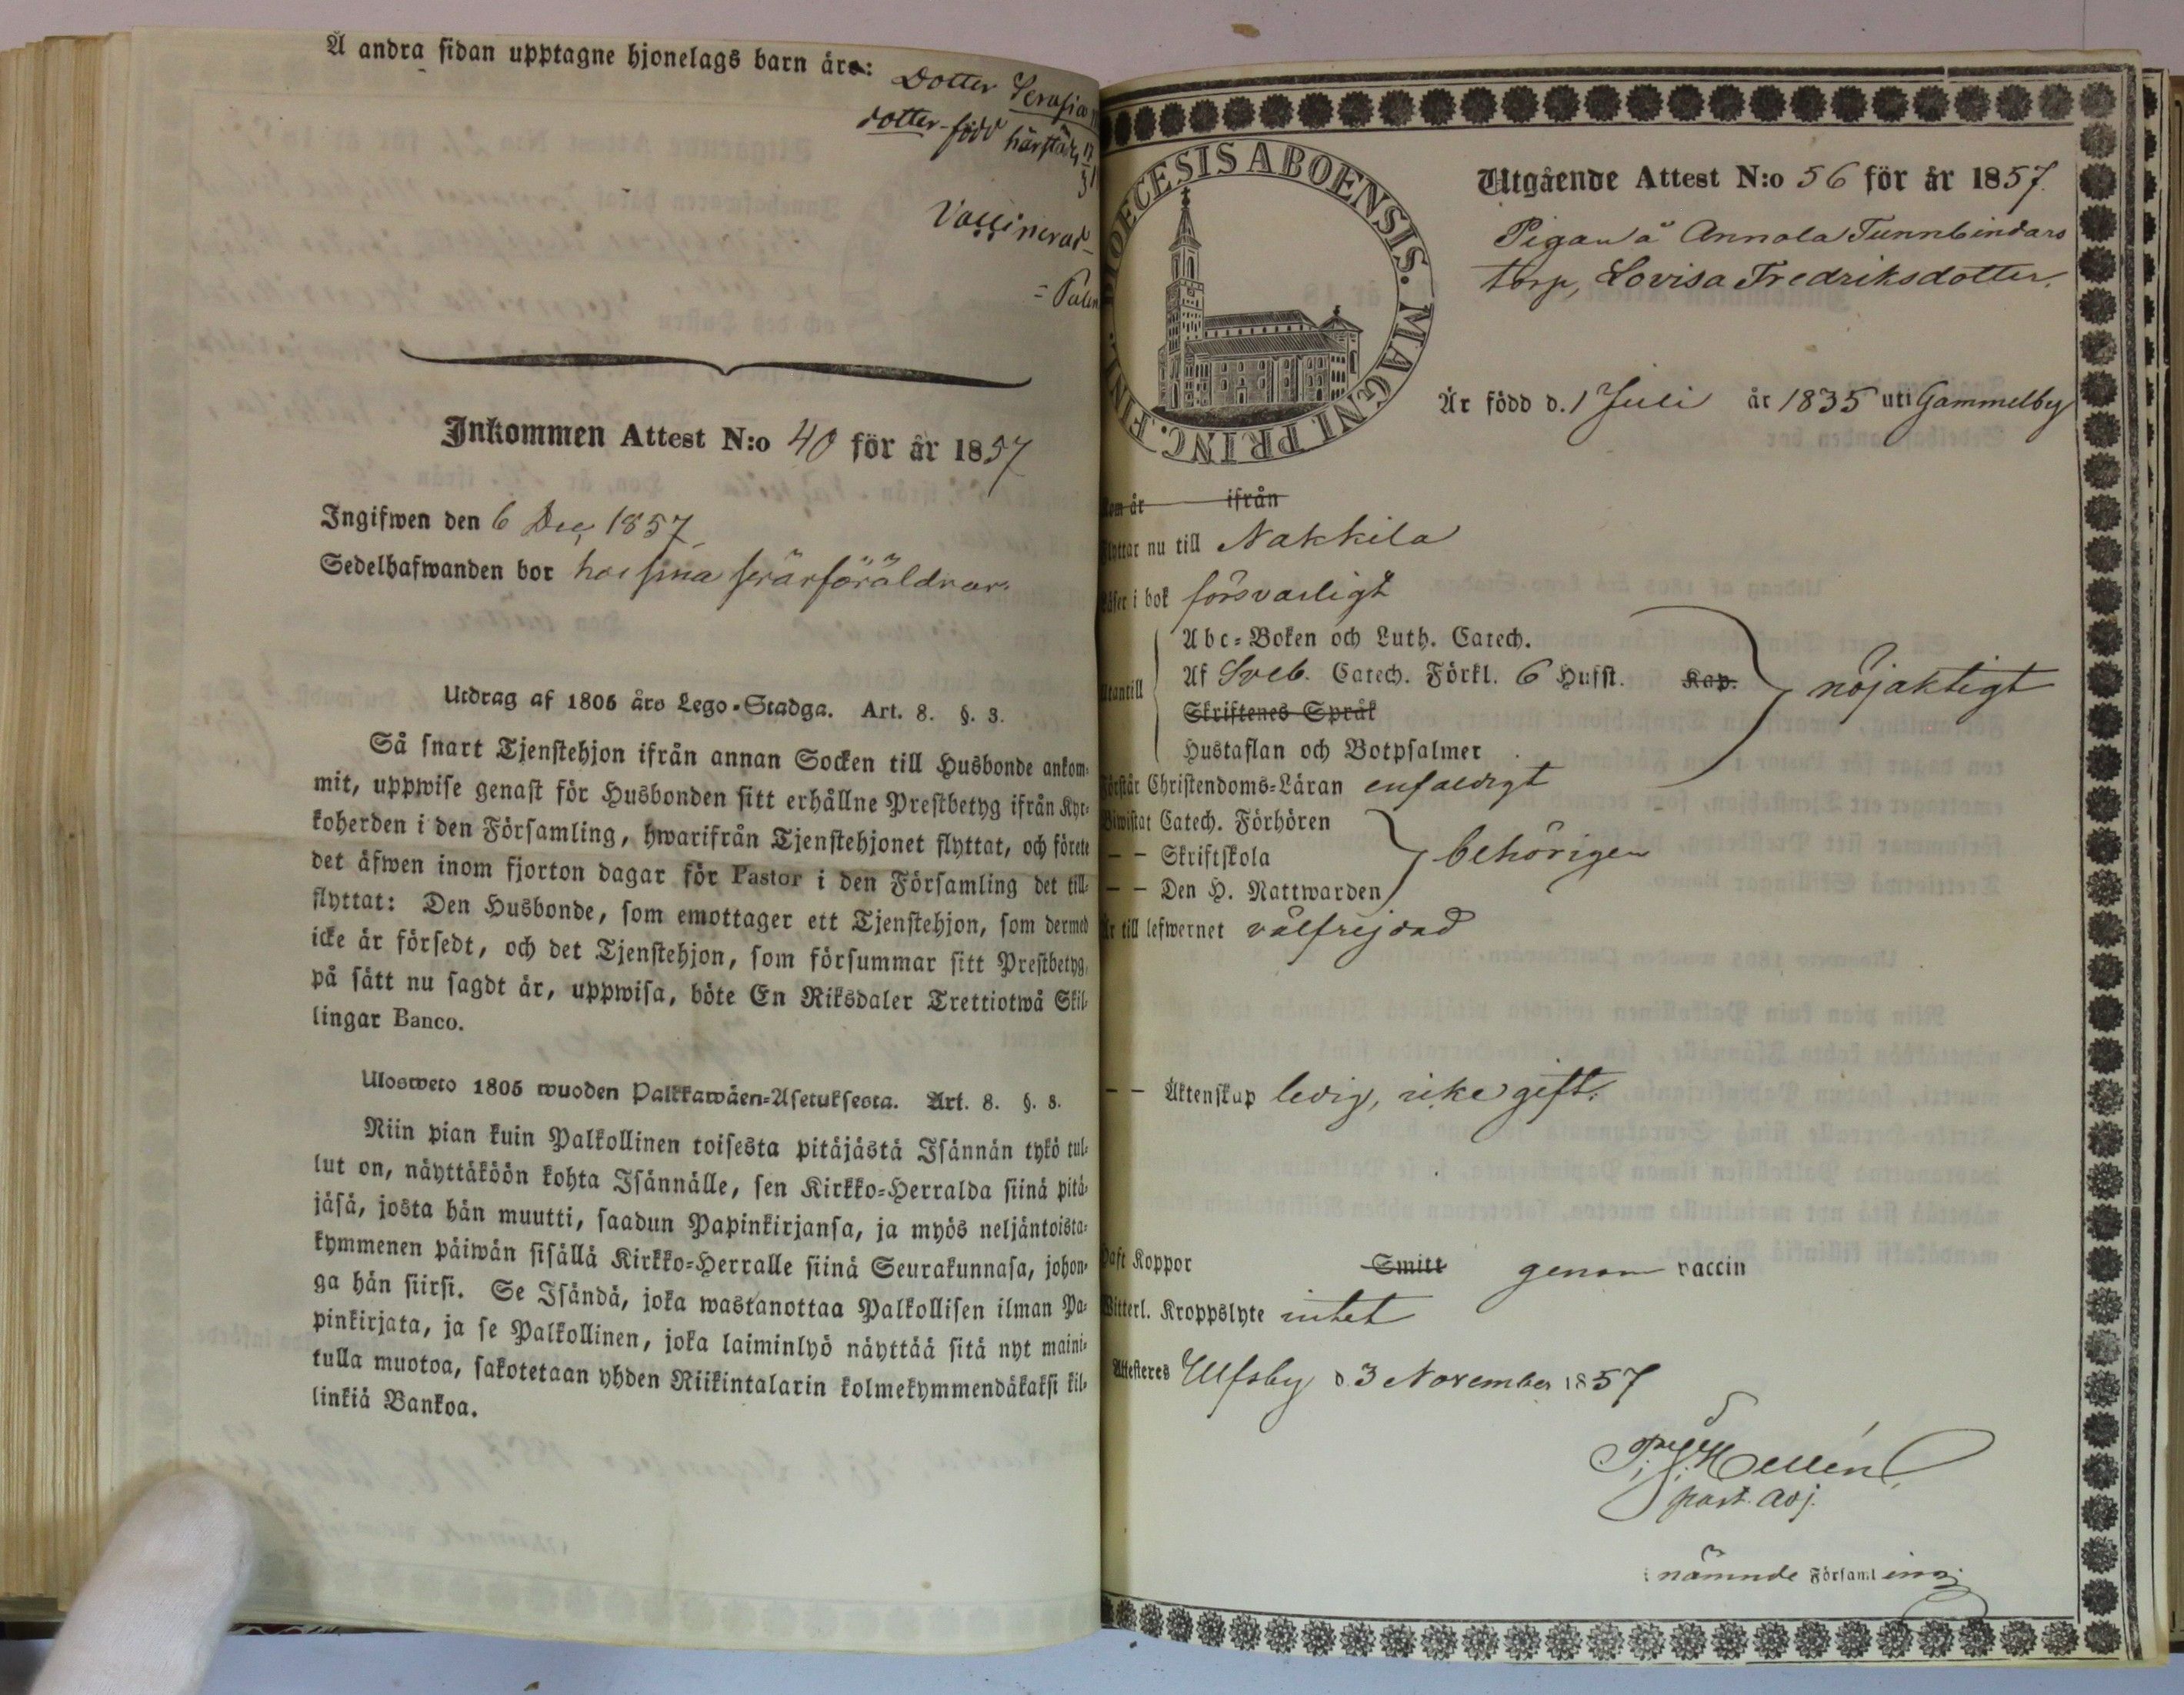 Å andra sidan upptagne hjonelags barn äro:
Dotter
dotter född härstädes
Vaccinerad
Inkommen Attest N:o 40 för år 1857
Ingifwen den 6 Dec. 1857
Sedelhafwanden bor hos sina svärföräldrar.
Utdrag af 1805 års Lego-Stadga. Art. 8. §. 3.
Så snart Tjenstehjon ifrån annan Socken till Husbonde ankom-
mit, uppwise genast för Husbonden sitt erhållne Prestbetyg ifrån Kyr-
koherden i den Församling, hwarifrån Tjenstehjonet flyttat, och förete
det äfwen inom fjorton dagar för Pastor i den Församling det till-
flyttat: Den Husbonde, som emottager ett Tjenstehjon, som dermed
icke är försedt, och det Tjenstehjon, som försummar sitt Prestbetyg,
på sätt nu sagdt är, uppwisa, böte En Riksdaler Trettiotwå Skil-
lingar Banco.
Ulosweto 1805 wuoden Palkkawäen-Asetuksesta. Art. 8. §. 3.
Niin pian kuin Palkollinen toisesta pitäjästä Isännän tykö tul-
lut on, näyttäköön kohta Isännälle, sen Kirkko-Herralda siinä pitä-
jäsä, josta hän muutti, saadun Papinkirjansa, ja myös neljäntoista-
kymmenen päiwän sisällä Kirkko-Herralle siinä Seurakunnasa, johon-
ga hän siirsi. Se Isändä, joka wastanottaa Palkollisen ilman Pa-
pinkirjata, ja se Palkollinen, joka laiminlyö näyttää sitä nyt maini-
tulla muotoa, sakotetaan yhden Riikintalarin kolmekymmendäkaksi kil-
linkiä Bankoa.
DIOECESIS ABOENSIS. MAGNI PRINC. FINL.
Utgående Attest N:o 56 för år 1857.
Pigan å Annola Tunnbindars
torp, Lovisa Fredriksdotter.
Är född d. 1 Juli år 1835 uti Gammelby
kom år ifrån
flyttar nu till Nakkila
Läser i bok försvarligt
Utantill
Abc-Boken och Luth. Catech.
Af Sveb. Catech. Förkl. 6 Hufst. Kap.
Skriftenes Språk
Hustaflan och Botpsalmer
nöjaktigt
Förstår Christendoms-Läran enfaldigt
Biwistat Catech. Förhören
— — Skriftskola
— — Den H. Nattwarden
behörigen
Är till lefwernet välfrejdad
— — Äktenskap ledig, icke gift.
Haft Koppor Smitt genom vaccin
Witterl. Kroppslyte intet
Attesteres Ulfsby d. 3 November 1857
Hellén
past. adj.
i nämnde Församling.